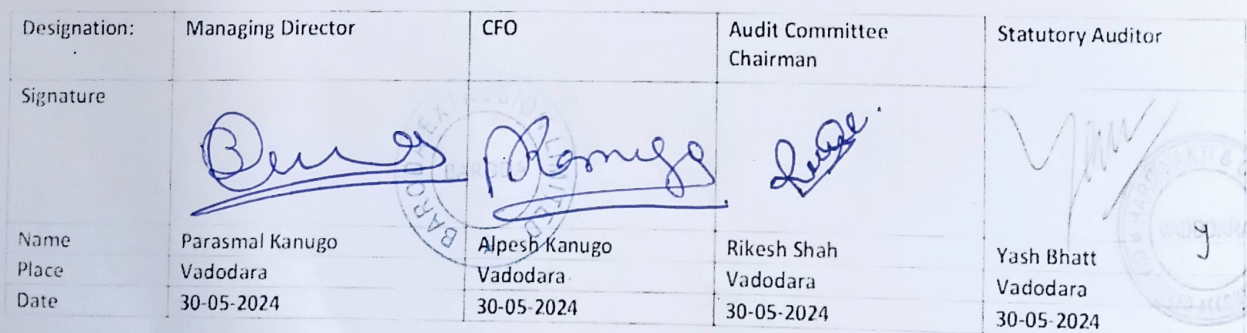 Designation: Managing Director CFO Audit Committee Chairman Statutory Auditor
Signature
Name Parasmal Kanugo Alpesh Kanugo Rikesh Shah Yash Bhatt
Place Vadodara Vadodara Vadodara Vadodara
Date 30-05-2024 30-05-2024 30-05-2024 30-05-2024